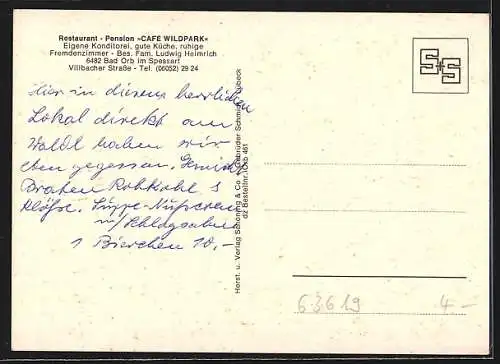 Restaurant - Pension »CAFE WILDPARK«
Eigene Konditorei, gute Küche, ruhige
Fremdenzimmer - Bes. Fam. Ludwig Heimrich
6482 Bad Orb im Spessart
Villbacher Straße - Tel. (06052) 29 24
Hier in diesem herrlichen
Lokal direkt am
Wald haben wir
eben gegessen.
Braten Rotkohl
Klöße. Suppe
1 Bierchen 10,-
Herst. u. Verlag Schöning & Co. + Gebrüder Schmidt, Lübeck
Bestellnr.
S+S
63619
4-